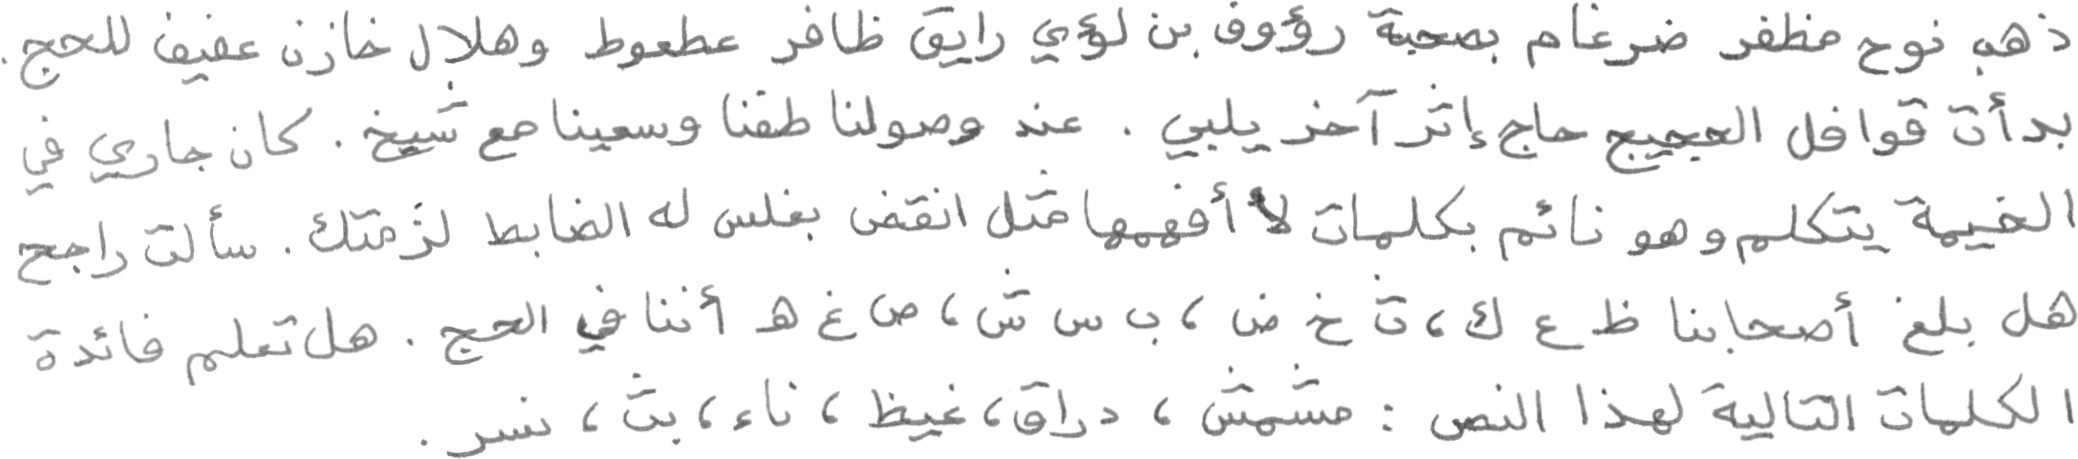 ذهب نوح مظفر ضرغام بصحبة رؤوف بن لؤي رايق ظافر عطعوط وهلال خازن عفيف للحج.
بدأت قوافل الحجيج حاج إثر آخر يلبي. عند وصولنا طفنا وسعينا مع شيخ. كان جاري في
الخيمة يتكلم وهو نائم بكلمات لا أفهمها مثل انقض بغلس له الضابط لزمتك. سألت راجح
هل بلغ أصحابنا ظ ع ك، ث خ ض، ب س ش، ص غ هـ أننا في الحج. هل تعلم فائدة
الكلمات التالية لهذا النص: مشمش، دراق، غيظ، ناء، بث، نسر.